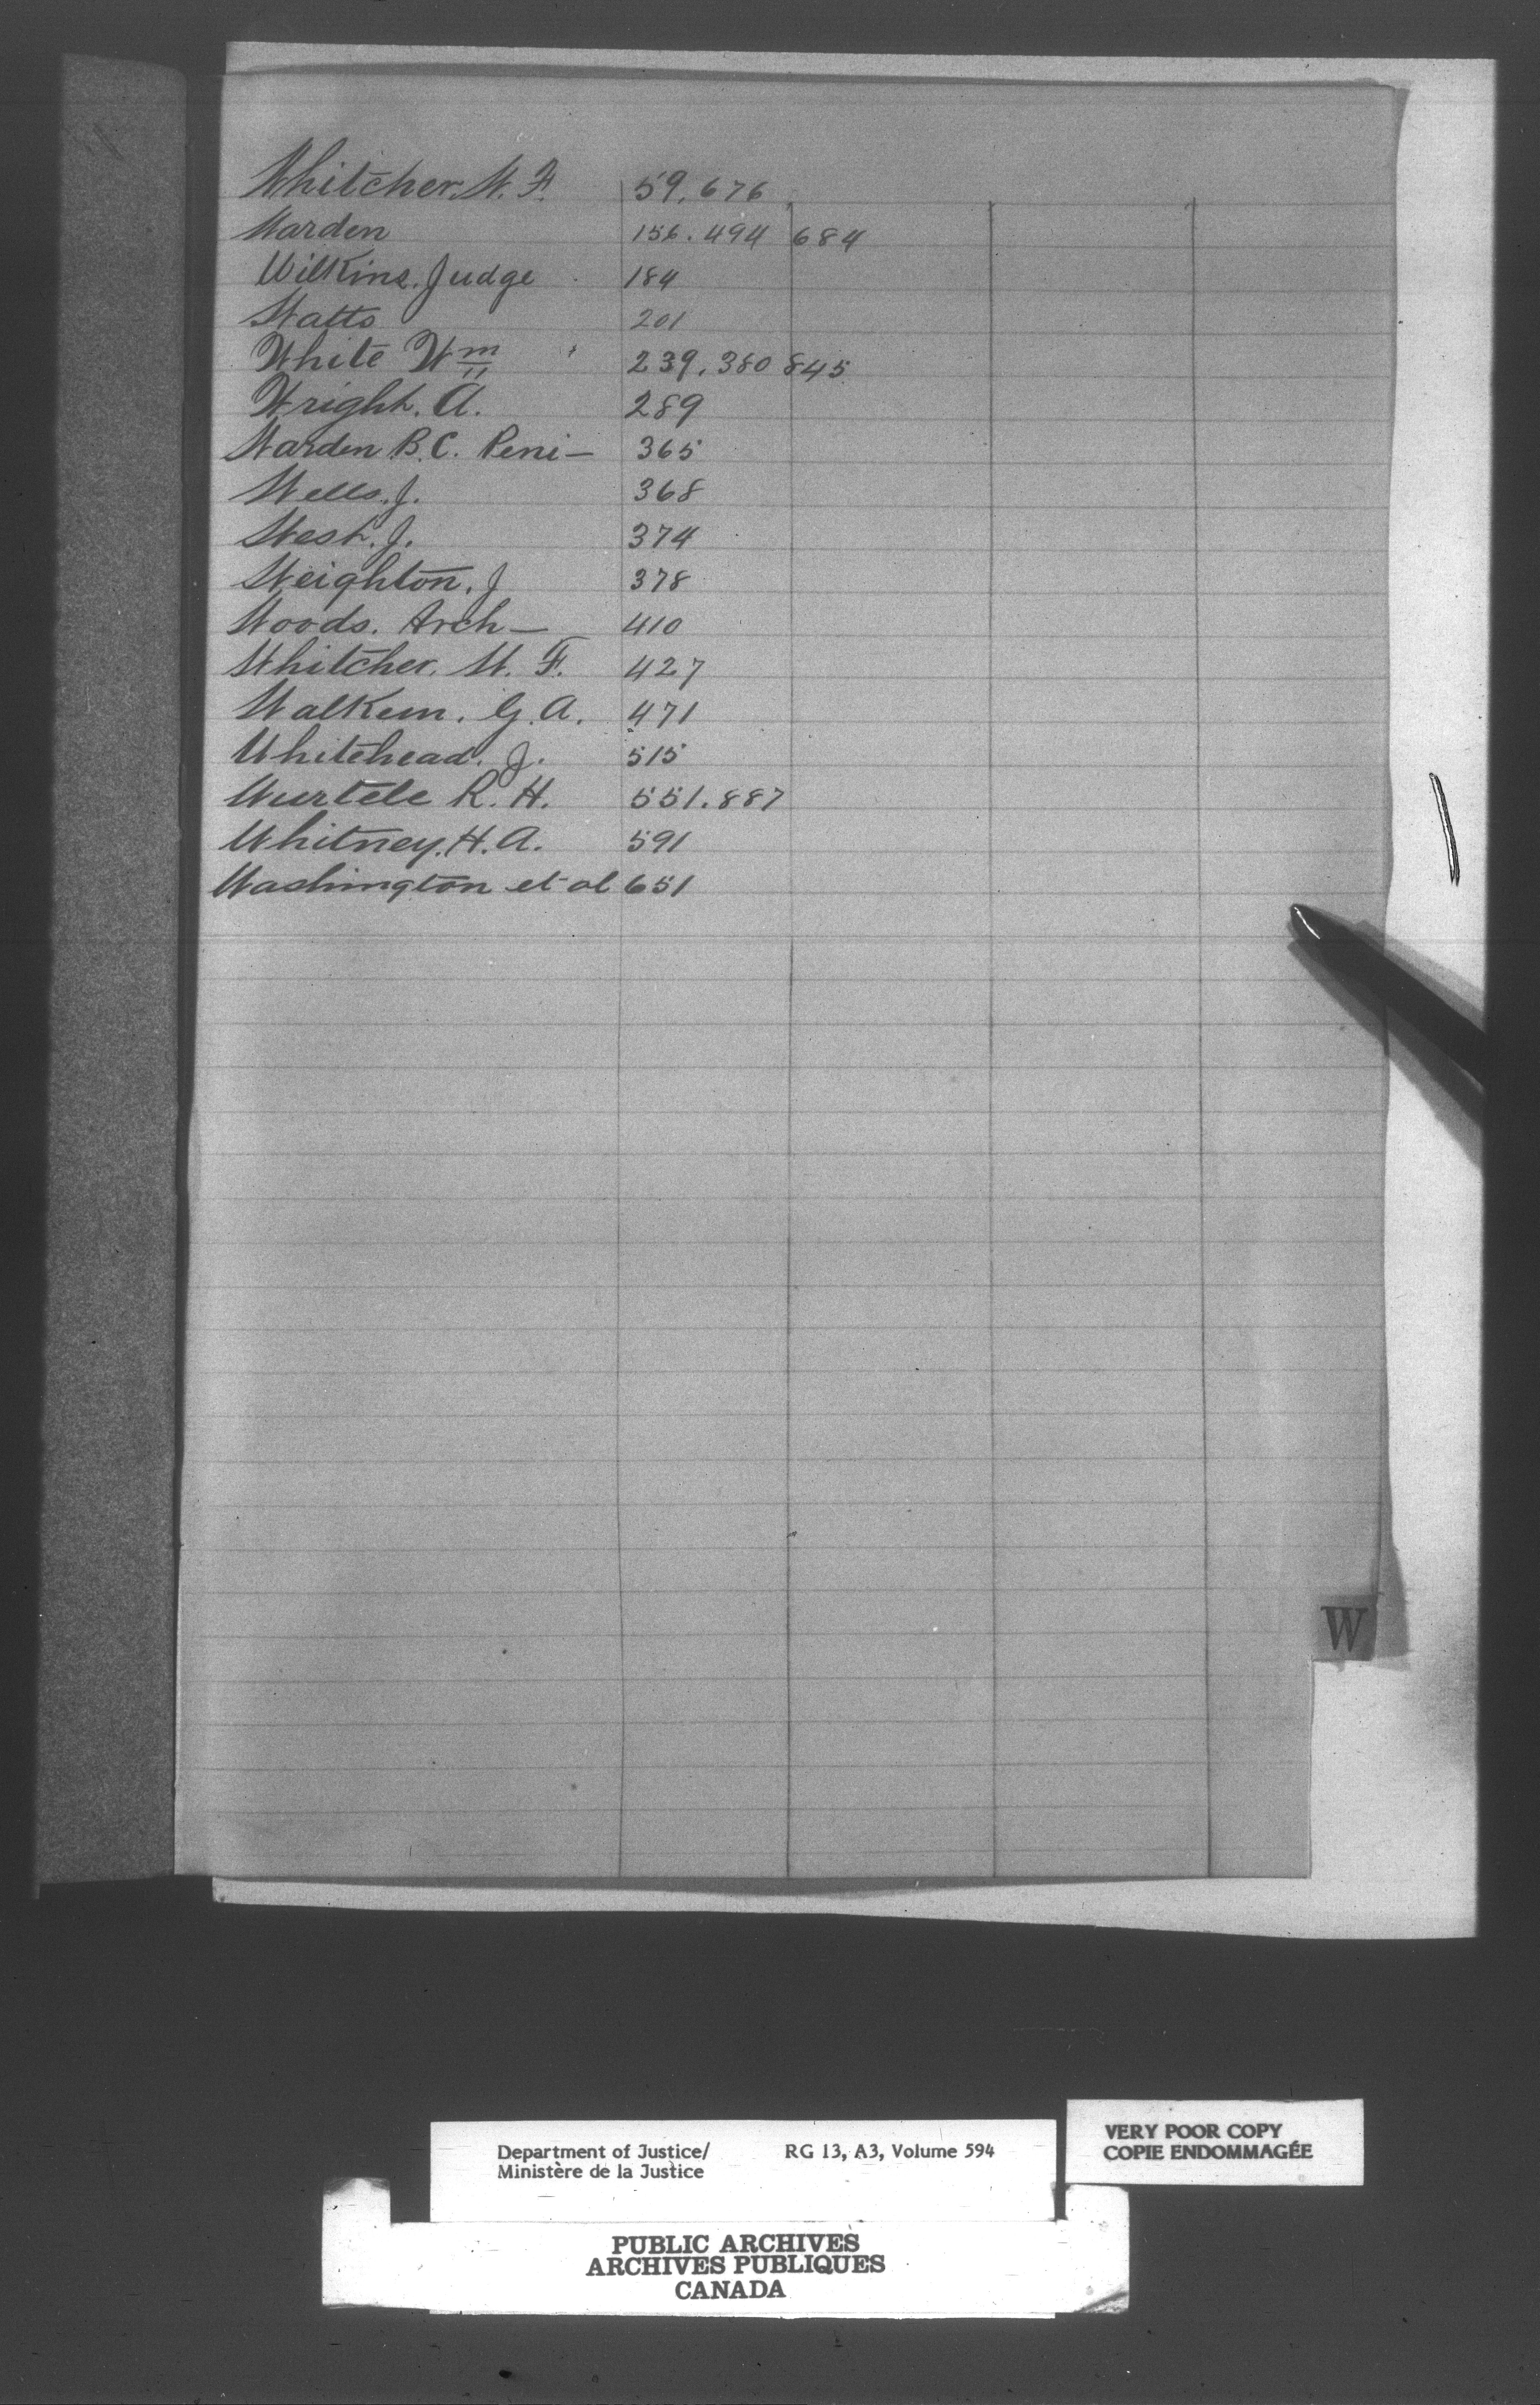 Whitcher. W. F. 59. 676
Warden 156. 494 684
Wilkins. Judge 184
Watts 201
White Wm 239. 380 845
Wright. A. 289
Warden B.C. Peni- 365
Wells. J. 368
West. J. 374
Weighton. J 378
Woods. Arch- 410
Whitcher. W. F. 427
Walkem. G. A. 471
Whitehead. J. 515
Wurtele R. H. 551. 887
Whitney. H. A. 591
Washington et al 651
W
VERY POOR COPY
COPIE ENDOMMAGÉE
Department of Justice/ RG 13, A3, Volume 594
Ministère de la Justice
PUBLIC ARCHIVES
ARCHIVES PUBLIQUES
CANADA